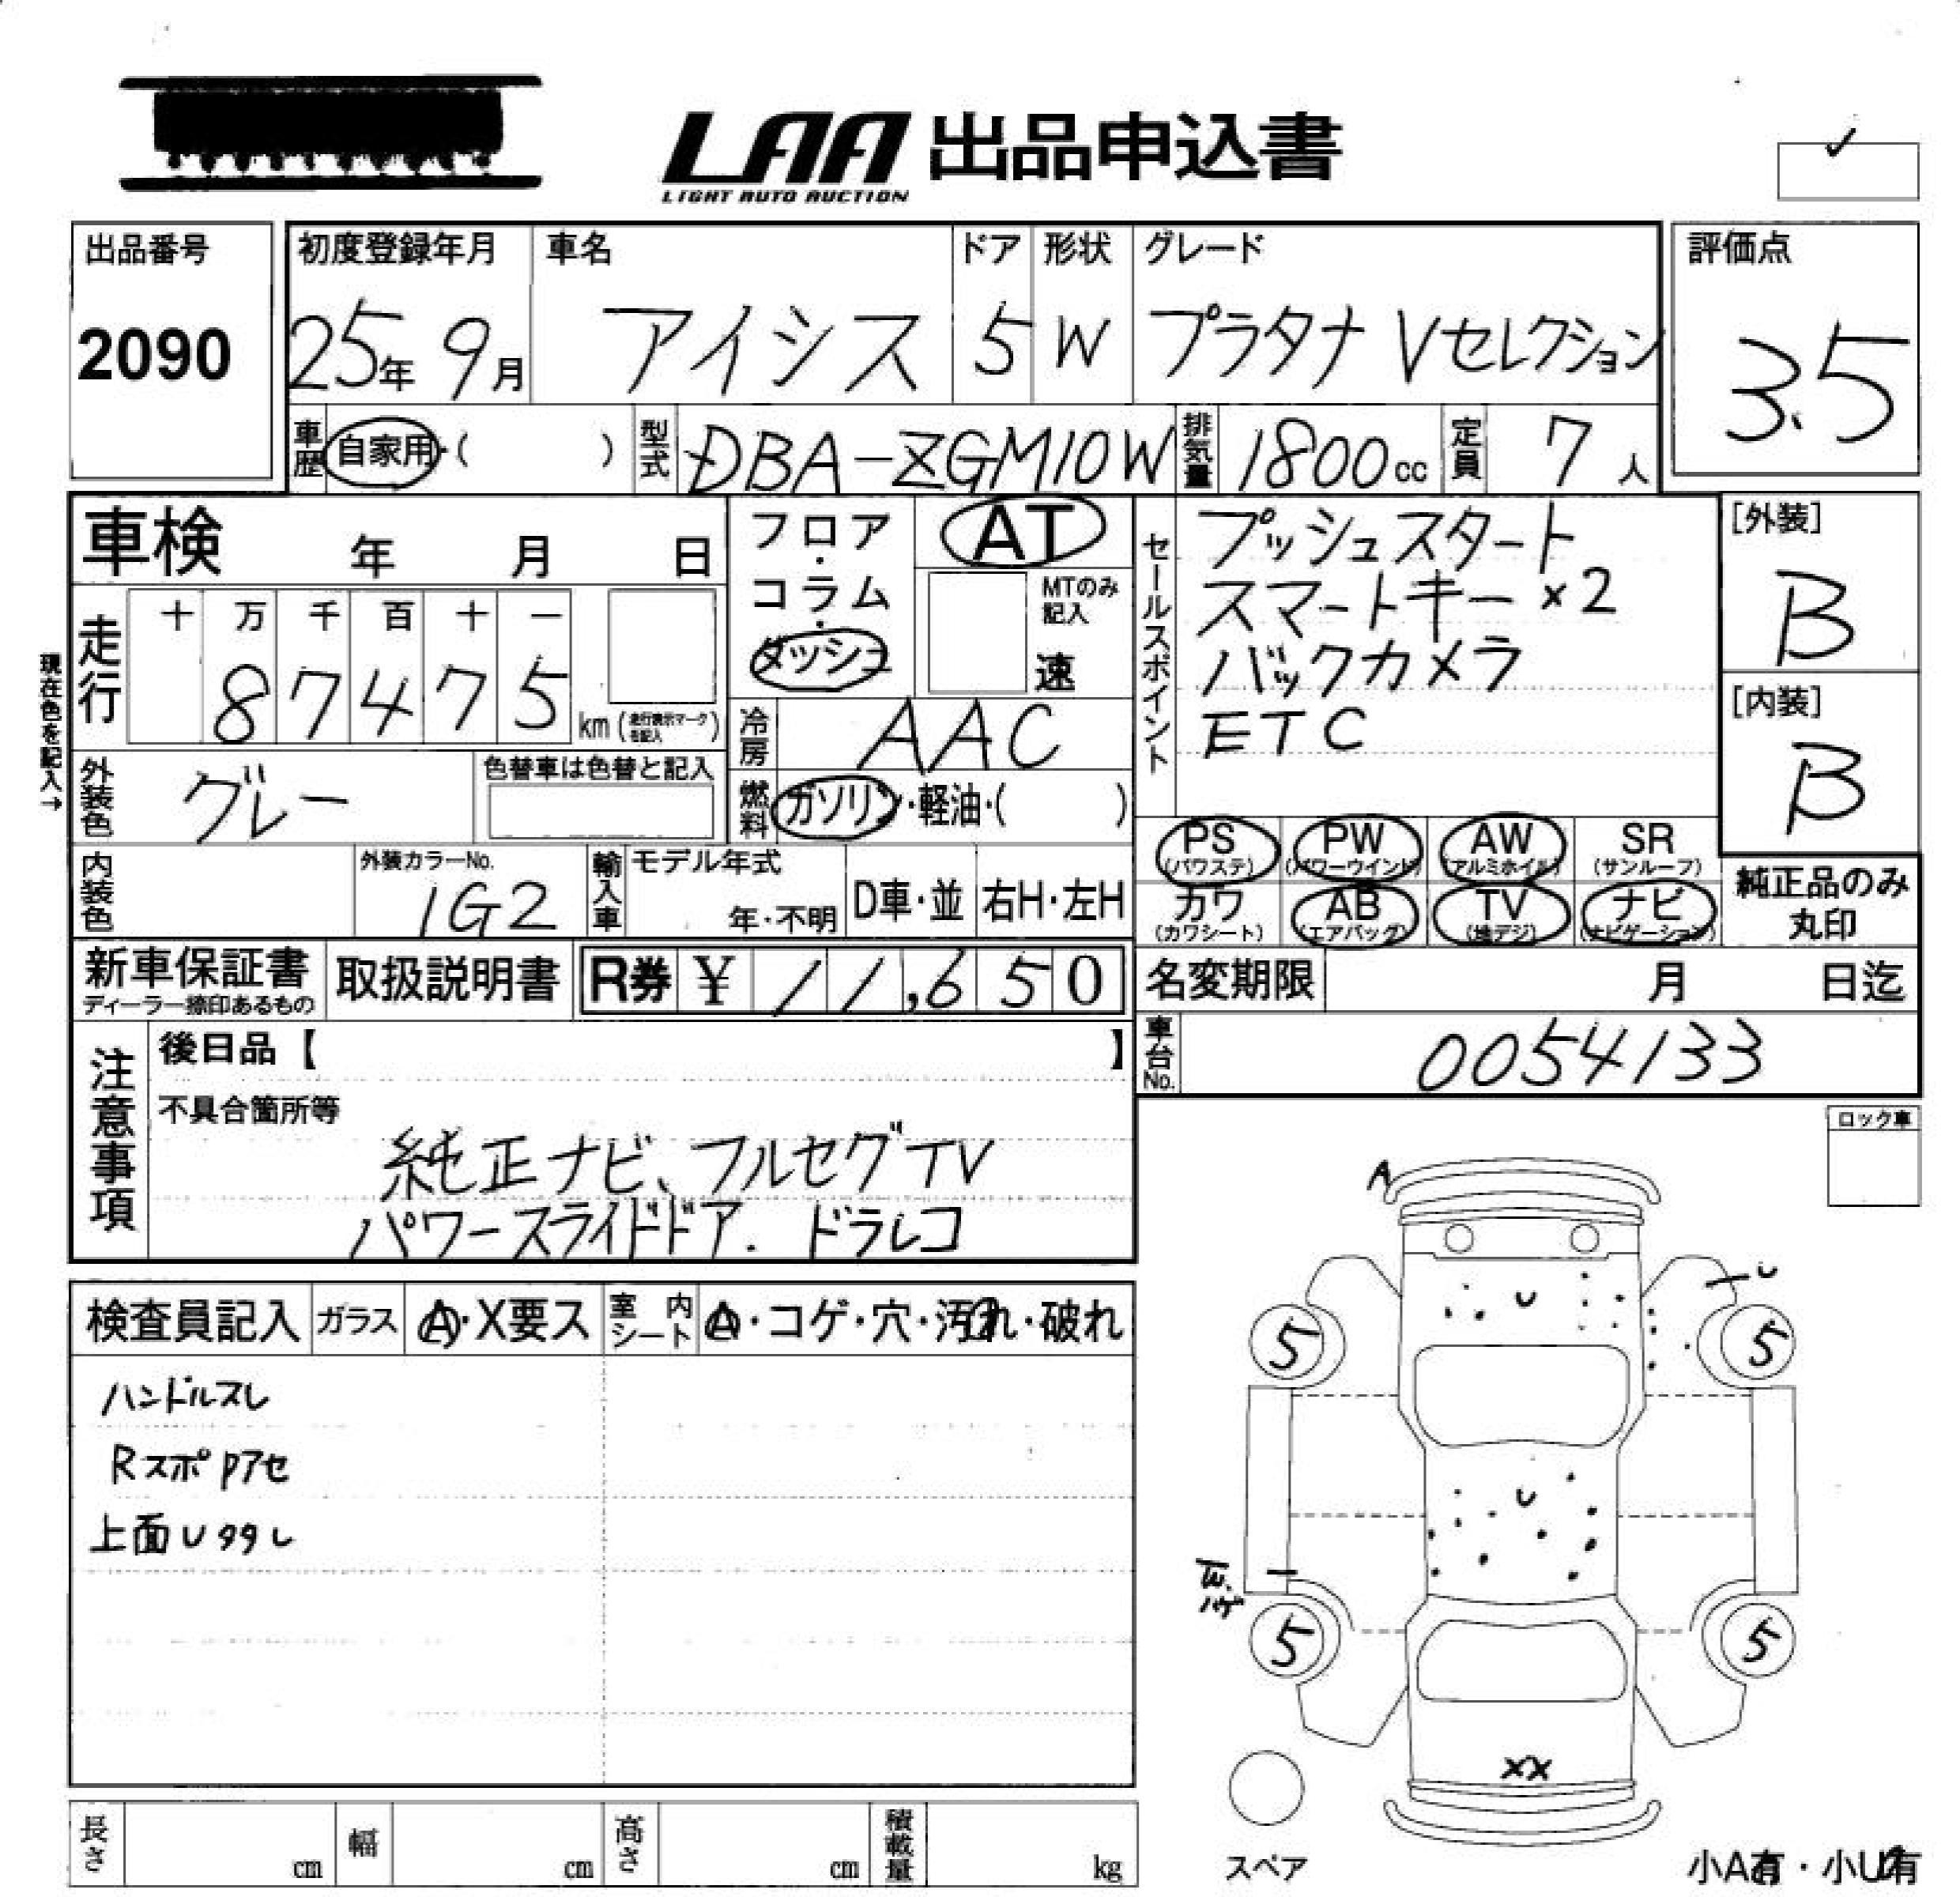 LAA 出品申込書
LIGHT AUTO AUCTION
✓
出品番号
2090
初度登録年月
25年 9月
車名
アイシス
ドア
5
形状
W
グレード
プラタナ Vセレクション
評価点
3.5
車歴 自家用・( )
型式 DBA-ZGM10W
排気量 1800cc
定員 7人
車検 年 月 日
フロア・コラム・ダッシュ
AT
MTのみ記入
速
セールスポイント
プッシュスタート
スマートキー×2
バックカメラ
ETC
[外装]
B
[内装]
B
現在色を記入→
走行
十 万 千 百 十 一
8 7 4 7 5 km (走行表示マークを記入)
冷房 AAC
外装色 グレー
色替車は色替と記入
燃料 ガソリン・軽油・( )
PS (パワステ)
PW (パワーウインド)
AW (アルミホイル)
SR (サンルーフ)
カワ (カワシート)
AB (エアバッグ)
TV (地デジ)
ナビ (ナビゲーション)
純正品のみ
丸印
内装色
外装カラーNo.
1G2
輸入車
モデル年式
年・不明
D車・並
右H・左H
新車保証書
ディーラー捺印あるもの
取扱説明書
R券 ¥ 11,650
名変期限 月 日迄
車台No. 0054133
注意事項
後日品【 】
不具合箇所等
純正ナビ、フルセグTV
パワースライドドア. ドラレコ
ロック車
検査員記入
ガラス A・X要ス
室内シート A・コゲ・穴・汚れ・破れ
ハンドルスレ
Rスポ Pアセ
上面U99し
A
U
U
5
5
U
5
5
XX
スペア
小A有・小U有
長さ cm
幅 cm
高さ cm
積載量 kg